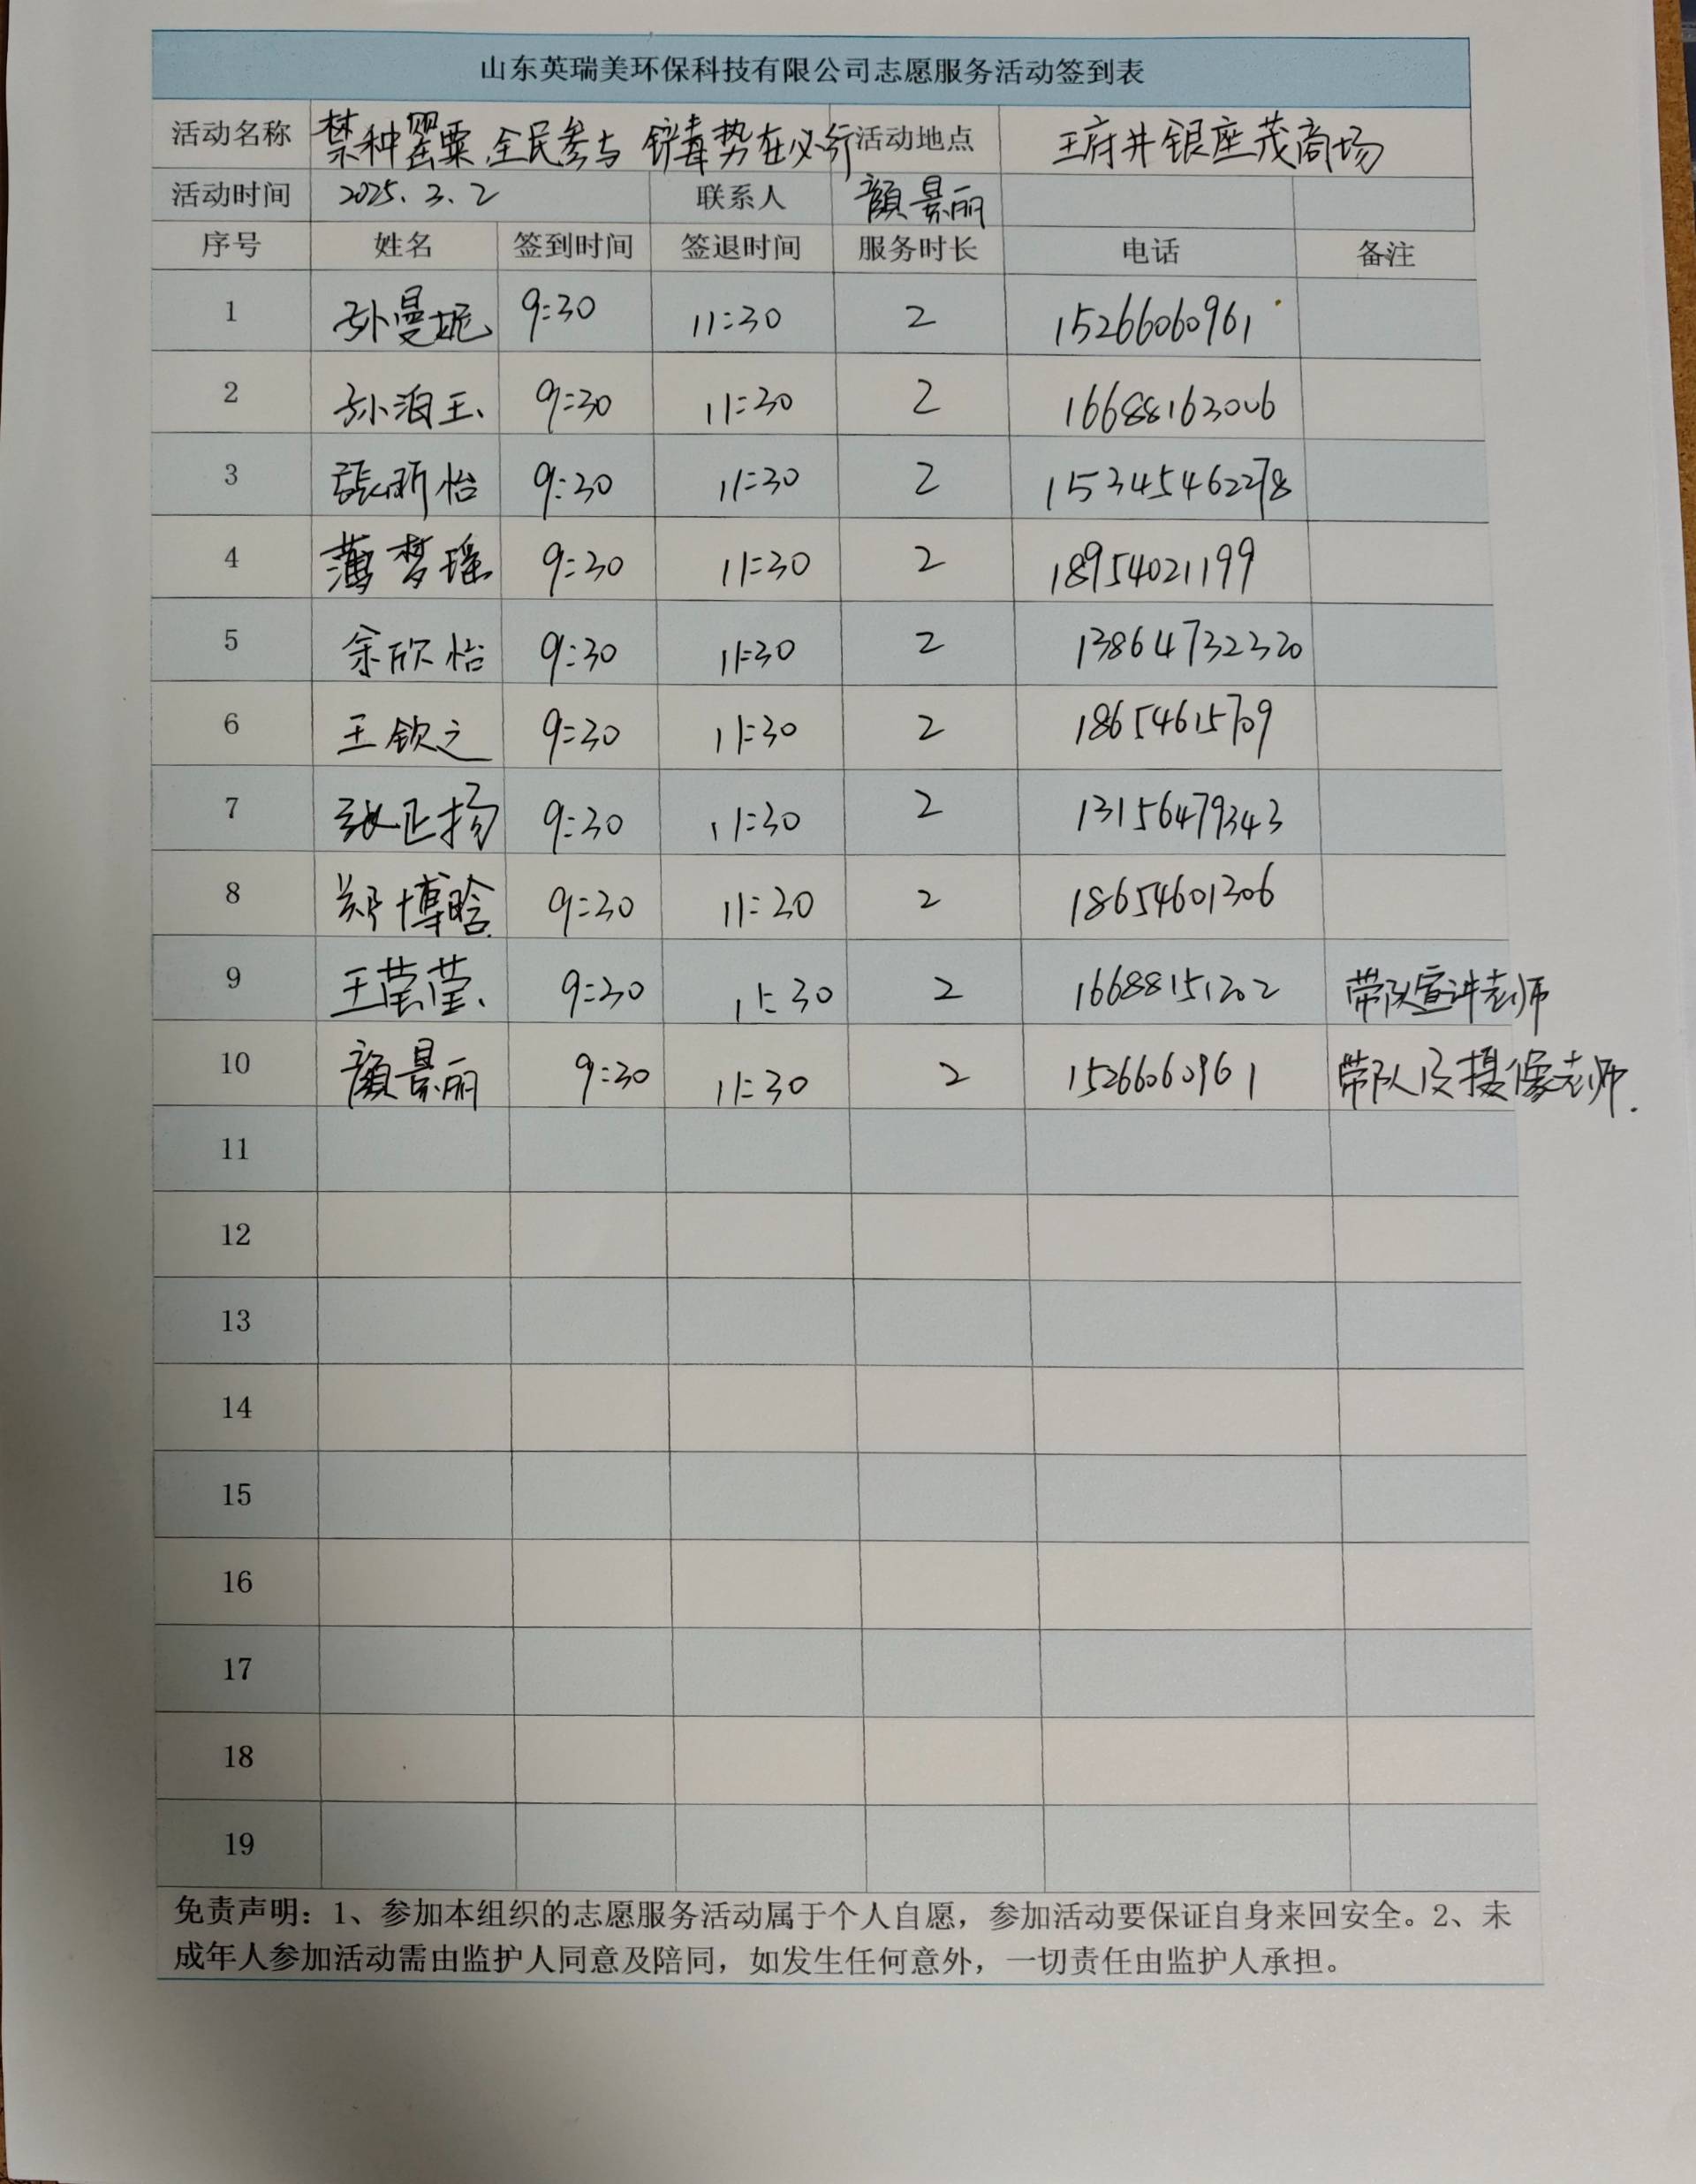 山东英瑞美环保科技有限公司志愿服务活动签到表
活动名称 禁种罂粟 全民参与 铲毒势在必行 活动地点 王府井银座茂商场
活动时间 2025.3.2 联系人 颜景丽
序号 姓名 签到时间 签退时间 服务时长 电话 备注
1 孙曼妮 9:30 11:30 2 15266060961
2 孙泊玉 9:30 11:30 2 16688163006
3 張昕怡 9:30 11:30 2 15345462278
4 薄梦瑶 9:30 11:30 2 18954021199
5 余欣怡 9:30 11:30 2 13864732320
6 王钦之 9:30 11:30 2 18654615709
7 张正扬 9:30 11:30 2 13156479343
8 郑博晗 9:30 11:30 2 18654601306
9 王莹莹 9:30 11:30 2 16688151202 带队宣讲老师
10 颜景丽 9:30 11:30 2 15266060961 带队及摄像老师.
11
12
13
14
15
16
17
18
19
免责声明：1、参加本组织的志愿服务活动属于个人自愿，参加活动要保证自身来回安全。2、未
成年人参加活动需由监护人同意及陪同，如发生任何意外，一切责任由监护人承担。